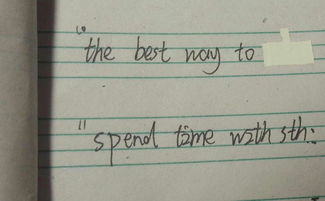 "the best way to
"spend time with sth.